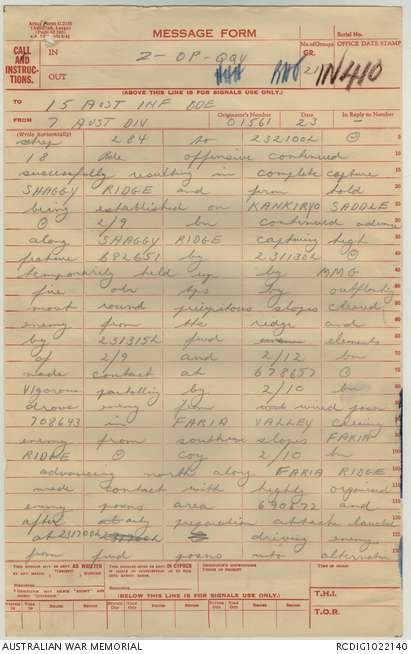 MESSAGE FORM
Serial No.
CALL AND INSTRUC-TIONS.
IN
Z-OP-QQY
No. of Groups
GR.
OFFICE DATE STAMP
OUT
IN 410
(ABOVE THIS LINE IS FOR SIGNALS USE ONLY.)
TO 15 AUST INF BDE
FROM 7 AUST DIV
Originator's Number
01561
Date
23
In Reply to Number
(Write horizontally)
284 to 232100L ⊙
18 Bde offensive continued
successfully resulting in complete capture
SHAGGY RIDGE and firm hold
being established on KANKIRYO SADDLE
⊙ 2/9 bn continued advance
along SHAGGY RIDGE capturing high
feature 682651 by 231130L ⊙
temporarily held up by MMG
fire our tps by outflanking
most round precipitous slopes cleared
enemy from the ridge and
by 231315L fwd elements
of 2/9 and 2/12 bn
made contact at 678657 ⊙
Vigorous patrolling by 2/10 bn
drove enemy from wired posn
708643 in FARIA VALLEY clearing
enemy from southern slopes FARIA
RIDGE ⊙ coy 2/10 bn
advancing north along FARIA RIDGE
made contact with highly organised
enemy posns area 690672 and
after arty preparation attack launched
at 231700L driving enemy
from fwd posns into alternative
(BELOW THIS LINE IS FOR SIGNALS USE ONLY.)
T.H.I.
T.O.R.
AUSTRALIAN WAR MEMORIAL
RCDIG1022140